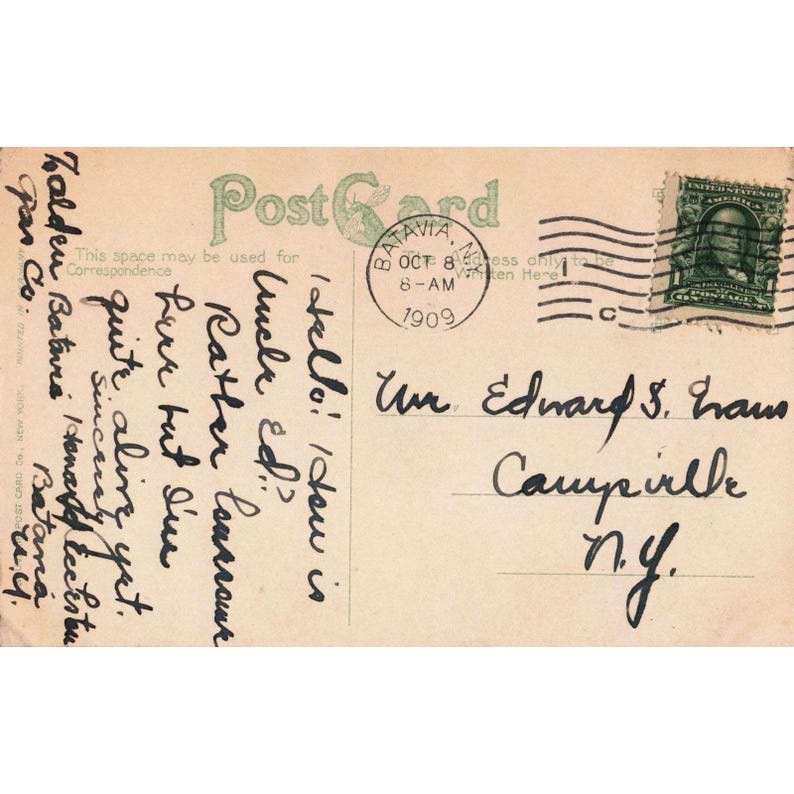 Post Card
This space may be used for
Correspondence
The Address only to be
Written Here
BATAVIA, N.Y.
OCT 8
8-AM
1909
1
C
UNITED STATES OF
AMERICA
1
Mr. Edward S. Evans
Campville
N.Y.
Hello! How is
Uncle Ed?
Rather lonesome
here but I'm
quite alive yet.
Sincerely
Howard Eccleston
Batavia
N.Y.
Batavia
Gas Co.
POST CARD Co., NEW YORK.
PRINTED IN